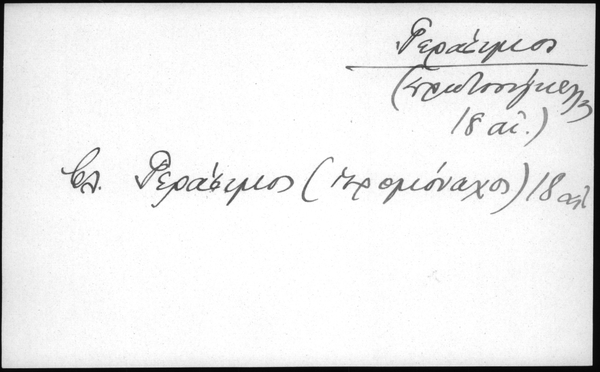 Γεράσιμος
(πρωτοσύγκελλος
18 αἰ.)
Βλ. Γεράσιμος (ἱερομόναχος) 18 αἰ.